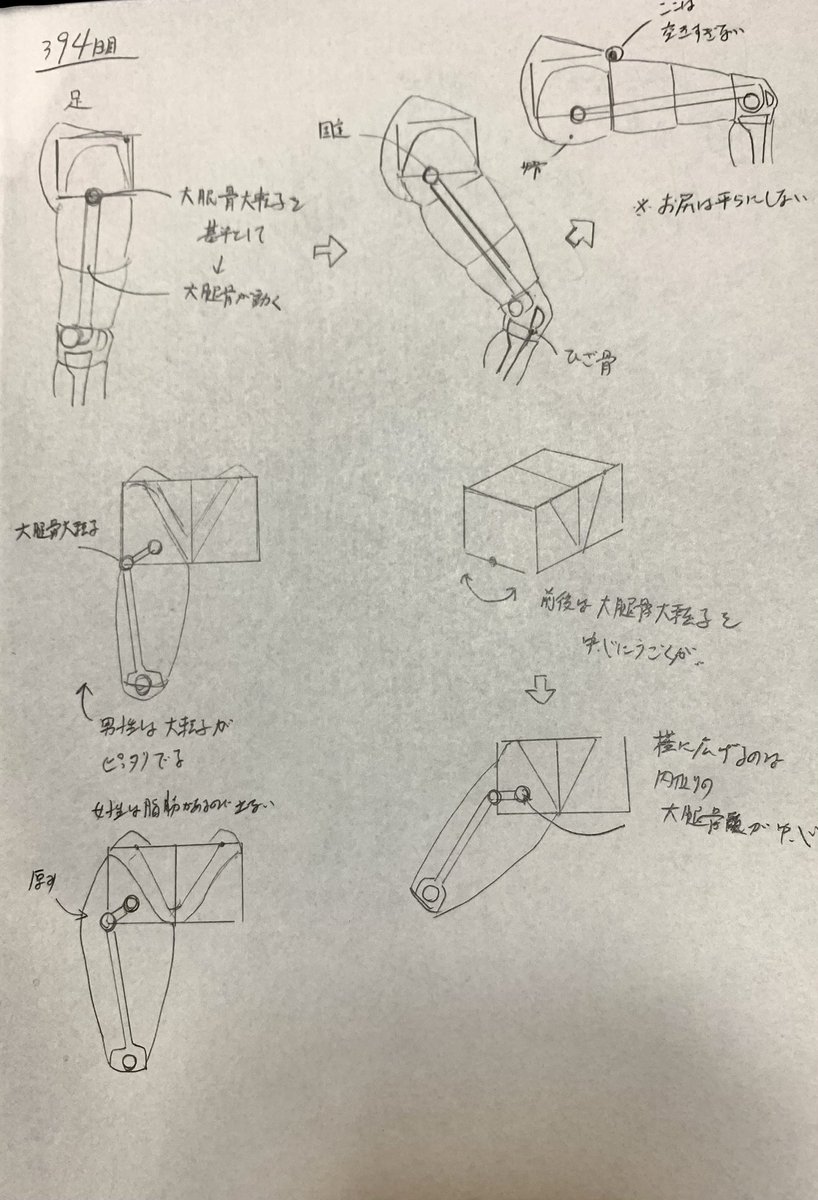 394日目
足
大腿骨大転子を
基準として
↓
大腿骨が動く
固定
ここは
空きすぎない
※ お尻は平らにしない
ひざ骨
大腿骨大転子
男性は大転子が
ピッタリでる
前後は大腿骨大転子を
中心にうごくが、
横に広げるのは
内側の
大腿骨頭が中心
女性は脂肪があるので出ない
厚み